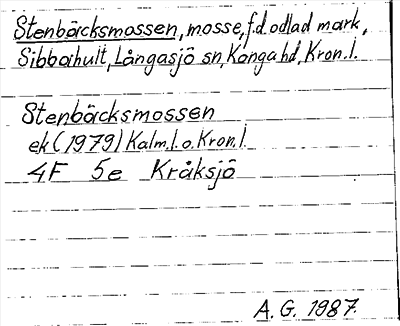 Stenbäcksmossen, mosse, f.d. odlad mark,
Sibbahult, Långasjö sn, Konga hd, Kron. l.
Stenbäcksmossen
ek (1979) Kalm. l. o. Kron. l.
4F 5e Kråksjö
A. G. 1987.